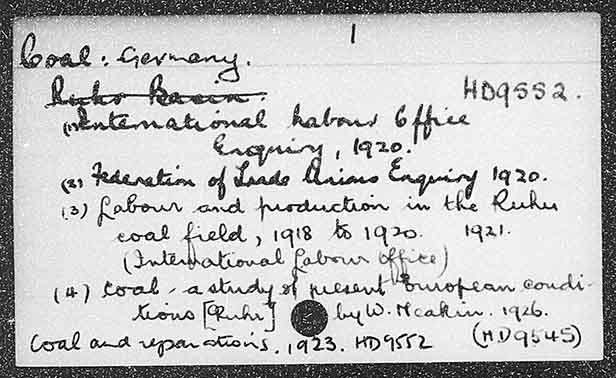 1
Coal : Germany.
Ruhr Basin.
HD9552.
(1) International Labour Office
Enquiry, 1920.
(2) Federation of Trade Unions Enquiry 1920.
(3) Labour and production in the Ruhr
coal field, 1918 to 1920. 1921.
(International Labour Office)
(4) Coal - a study of present European condi-
tions [Ruhr] by W. Meakin. 1926.
Coal and reparations. 1923. HD9552 (HD9545)